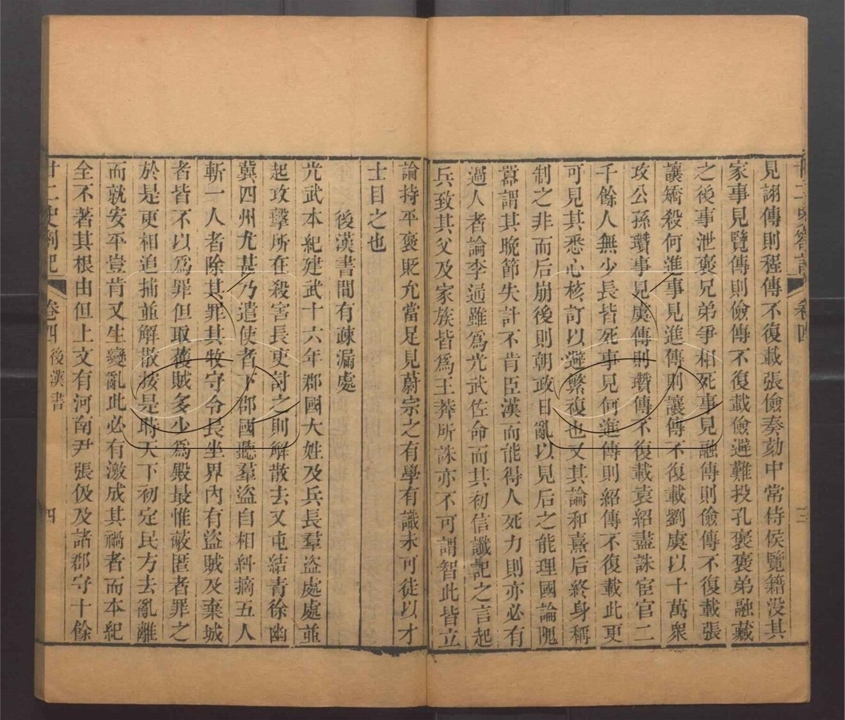 見詡傳則程傳不復載張儉奏劾中常侍侯覽籍沒其
家事見覽傳則儉傳不復載儉避難投孔褒褒弟融藏
之後事泄褒兄弟爭相死事見融傳則儉傳不復載張
讓矯殺何進事見進傳則讓傳不復載劉虞以十萬衆
攻公孫瓚事見虞傳則瓚傳不復載袁紹盡誅宦官二
千餘人無少長皆死事見何進傳則紹傳不復載此更
可見其悉心核訂以避繁複也又其論和熹后終身稱
制之非而后崩後則朝政日亂以見后之能理國論隗
囂謂其晚節失計不肯臣漢而能得人死力則亦必有
過人者論李通雖爲光武佐命而其初信讖記之言起
兵致其父及家族皆爲王莽所誅亦不可謂智此皆立
論持平褒貶允當足見蔚宗之有學有識未可徒以才
士目之也
後漢書間有疎漏處
光武本紀建武十六年郡國大姓及兵長羣盜處處並
起攻擊所在殺害長吏討之則解散去又屯結青徐幽
冀四州尤甚乃遣使者下郡國聽羣盜自相糾摘五人
斬一人者除其罪其牧守令長坐界內有盜賊及棄城
者皆不以爲罪但取獲賊多少爲殿最惟蔽匿者罪之
於是更相追捕並解散按是時天下初定民方去亂離
而就安平豈肯又生變亂此必有激成其禍者而本紀
全不著其根由但上文有河南尹張伋及諸郡守十餘
廿二史劄記 卷四 後漢書 四